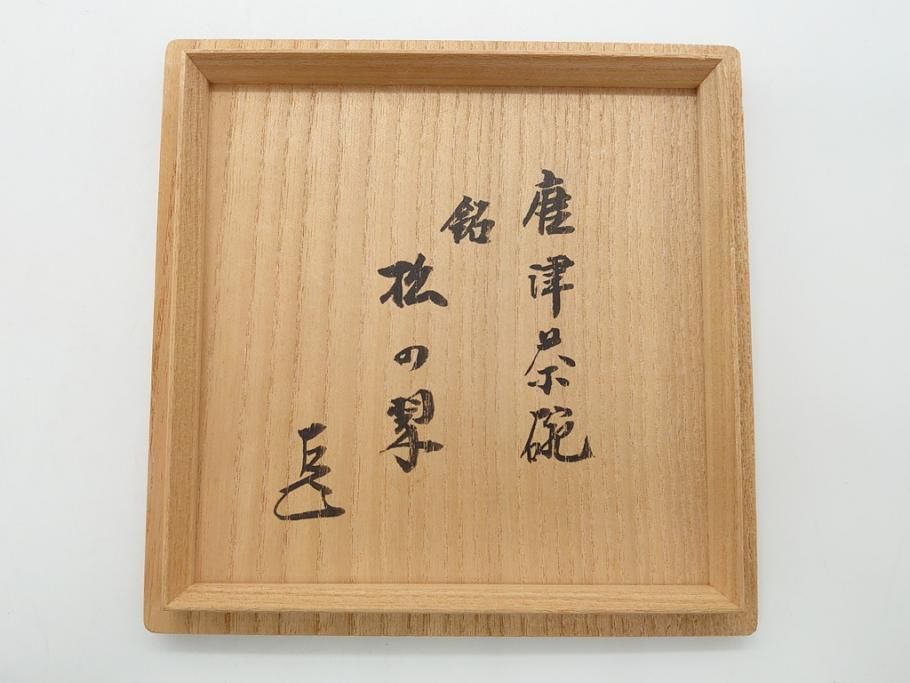 唐津茶碗
銘
松の翠